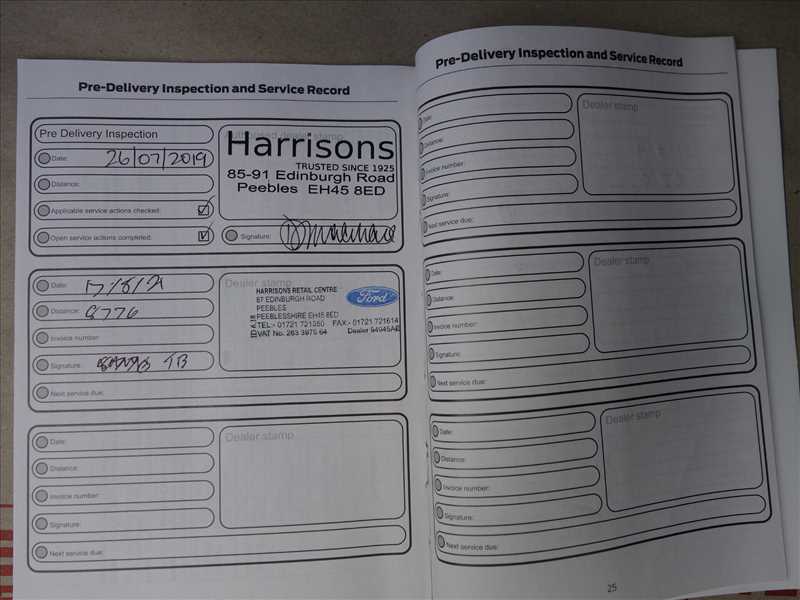 Pre-Delivery Inspection and Service Record
Pre Delivery Inspection
Date: 26/07/2019
Distance:
Applicable service actions checked:
Open service actions completed:
Authorised dealer stamp
Harrisons
TRUSTED SINCE 1925
85-91 Edinburgh Road
Peebles EH45 8ED
Signature:
Date: 17/8/21
Distance: 8776
Invoice number:
Signature:
Next service due:
Dealer stamp
HARRISONS RETAIL CENTRE
87 EDINBURGH ROAD
PEEBLES
PEEBLESSHIRE EH45 8ED
TEL:- 01721 721350 FAX:- 01721 721614
VAT No. 263 3975 64 Dealer 94045AE
Ford
Date:
Distance:
Invoice number:
Signature:
Next service due:
Dealer stamp
Pre-Delivery Inspection and Service Record
Date:
Distance:
Invoice number:
Signature:
Next service due:
Dealer stamp
Date:
Distance:
Invoice number:
Signature:
Next service due:
Dealer stamp
Date:
Distance:
Invoice number:
Signature:
Next service due:
Dealer stamp
25